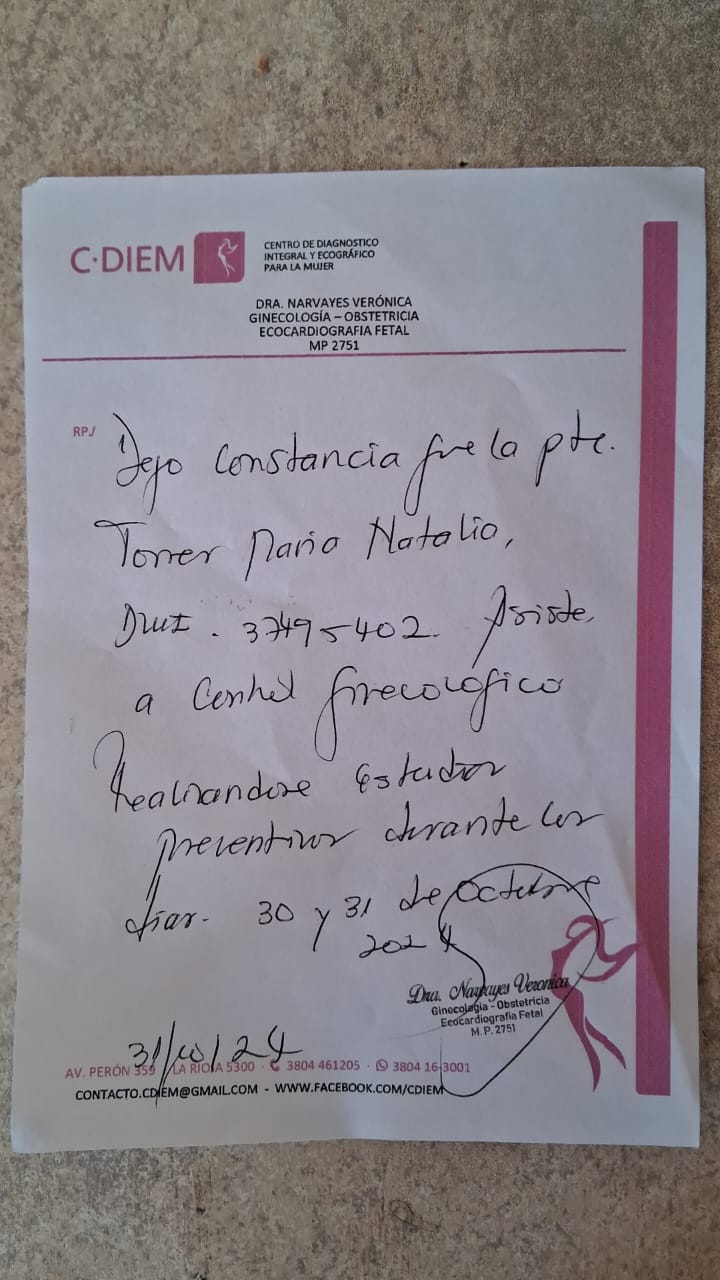 C·DIEM
CENTRO DE DIAGNOSTICO
INTEGRAL Y ECOGRÁFICO
PARA LA MUJER
DRA. NARVAYES VERÓNICA
GINECOLOGÍA – OBSTETRICIA
ECOCARDIOGRAFIA FETAL
MP 2751
RP./
Dejo Constancia que la pte.
Torres Maria Natalia,
DNI. 37495402. Asiste,
a Control Ginecologico
Realizandose Estudios
Preventivos durante los
dias. 30 y 31 de Octubre
2024
Dra. Narvayes Veronica
Ginecologia - Obstetricia
Ecocardiografia Fetal
M. P. 2751
31/10/24
AV. PERÓN 359 / LA RIOJA 5300 · 3804 461205 · 3804 16-3001
CONTACTO.CDIEM@GMAIL.COM - WWW.FACEBOOK.COM/CDIEM